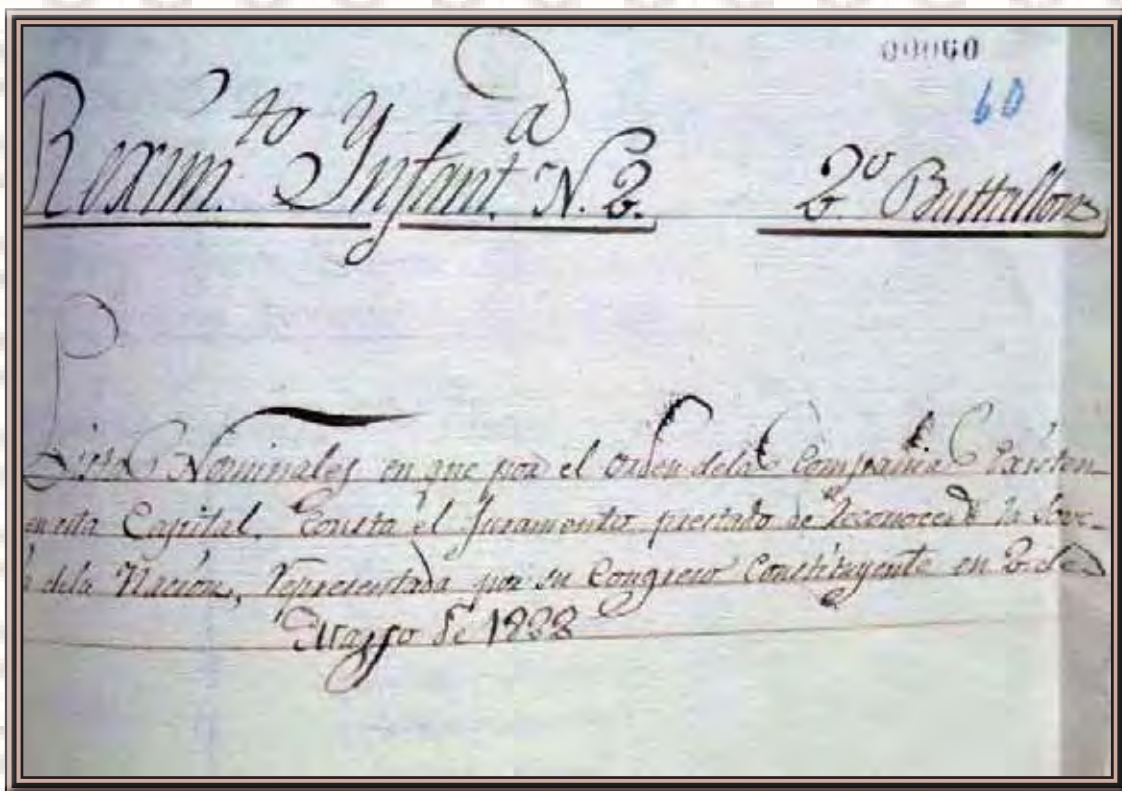 00060
60
Reximto Ynfanta N. 2. 2o Battallon
Listas Nominales en que por el Orden de las Compañias Existen
en esta Capital. Consta el Juramento prestado de Reconocer la Sove-
de la Nacion, representada por su Congreso Constituyente en 2 de
Marzo de 1822